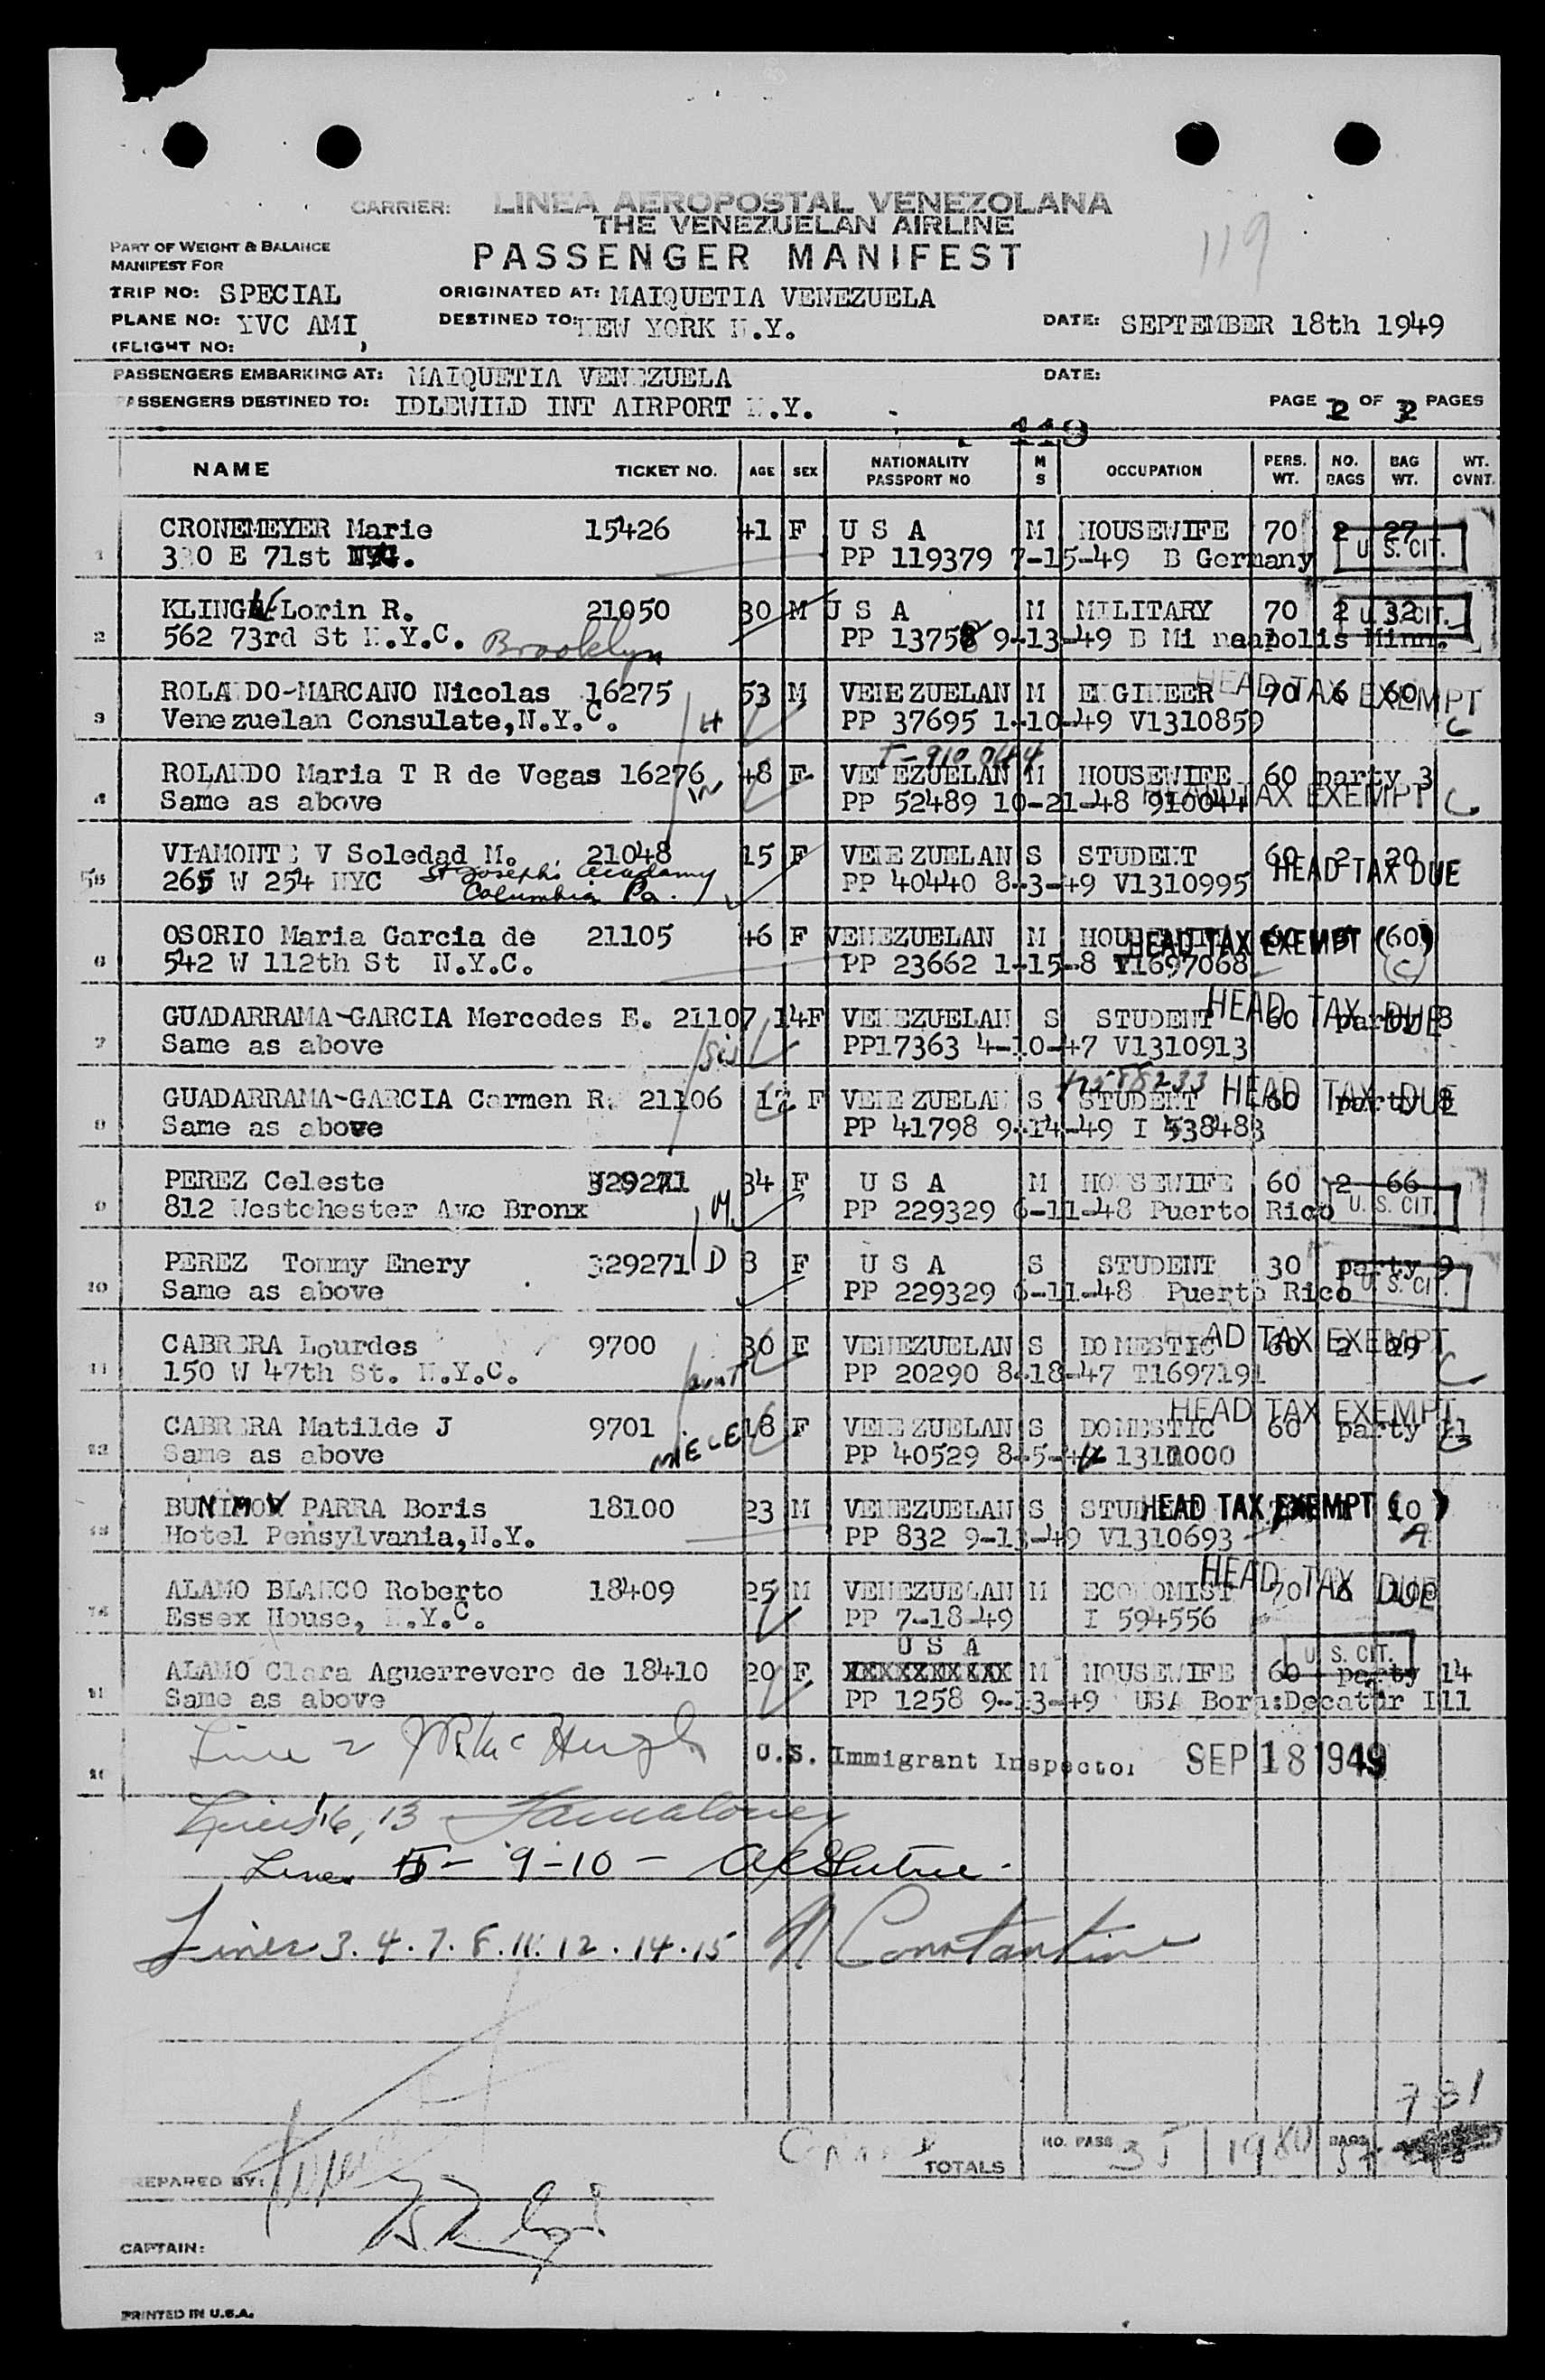 119
CARRIER: LINEA AEROPOSTAL VENEZOLANA
THE VENEZUELAN AIRLINE
PART OF WEIGHT & BALANCE
MANIFEST FOR
PASSENGER MANIFEST
TRIP NO: SPECIAL ORIGINATED AT: MAIQUETIA VENEZUELA
PLANE NO: YVC AMI DESTINED TO: NEW YORK N.Y. DATE: SEPTEMBER 18th 1949
(FLIGHT NO: )
PASSENGERS EMBARKING AT: MAIQUETIA VENEZUELA DATE:
PASSENGERS DESTINED TO: IDLEWILD INT AIRPORT N.Y. PAGE 2 OF PAGES
119
NAME TICKET NO. AGE SEX NATIONALITY PASSPORT NO M S OCCUPATION PERS. WT. NO. BAGS BAG WT. WT. CVNT.
1 CRONEMEYER Marie 15426 41 F U S A M HOUSEWIFE 70 2 27
E 71st PP 119379 7-15-49 B Germany U. S. CIT.
2 Lorin R. 21050 30 M U S A M MILITARY 70 2 32 U. S. CIT.
562 73rd St N.Y.C. Brooklyn PP 13758 9-13-49 B Minneapolis Minn.
3 ROLANDO-MARCANO Nicolas 16275 53 M VENEZUELAN M ENGINEER 70 6 60 HEAD TAX EXEMPT
Venezuelan Consulate, N.Y.C. H PP 37695 1-10-49 V1310859 C
T-910044
4 ROLANDO Maria T R de Vegas 16276 48 F VENEZUELAN M HOUSEWIFE 60 party 3
Same as above W PP 52489 10-21-48 910044 HEAD TAX EXEMPT C
5 VIAMONTE V Soledad M. 21048 15 F VENEZUELAN S STUDENT 60 2 20
265 W 254 NYC St Josephs Academy PP 40440 8-3-49 V1310995 HEAD TAX DUE
Columbia Pa.
6 OSORIO Maria Garcia de 21105 46 F VENEZUELAN M HOUSEWIFE 60 60 HEAD TAX EXEMPT ( )
542 W 112th St N.Y.C. PP 23662 1-15-8 T1697068 C
7 GUADARRAMA-GARCIA Mercedes E. 21107 14 F VENEZUELAN S STUDENT 60 party 8 HEAD TAX DUE
Same as above Sis PP17363 4-10-47 V1310913
8 GUADARRAMA-GARCIA Carmen R. 21106 12 F VENEZUELAN S STUDENT 60 party 8 HEAD TAX DUE
Same as above PP 41798 9-14-49 I 538483
9 PEREZ Celeste 329271 34 F U S A M HOUSEWIFE 60 2 66
812 Westchester Ave Bronx M. PP 229329 6-11-48 Puerto Rico U. S. CIT.
10 PEREZ Tommy Enery 329271 D 8 F U S A S STUDENT 30 party 9
Same as above PP 229329 6-11-48 Puerto Rico U. S. CIT.
11 CABRERA Lourdes 9700 30 F VENEZUELAN S DOMESTIC 60 2 29 HEAD TAX EXEMPT
150 W 47th St. N.Y.C. aunt PP 20290 8-18-47 T1697191 C
12 CABRERA Matilde J 9701 18 F VENEZUELAN S DOMESTIC 60 party 11 HEAD TAX EXEMPT
Same as above NIECE PP 40529 8-5- C
13 PARRA Boris 18100 23 M VENEZUELAN S HEAD TAX EXEMPT ( )
Hotel Pensylvania, N.Y. PP 832 9-13-49 V1310693 A
14 ALAMO BLANCO Roberto 18409 25 M VENEZUELAN M ECONOMIST 70 6 100 HEAD TAX DUE
Essex House, N.Y.C. PP 7-18-49 I 594556
U S A U. S. CIT.
ALAMO Clara Aguerrevere de 18410 20 F XXXXXXXXXX M HOUSEWIFE 60 party 14
Same as above PP 1258 9-13-49 USA Born:Decatur Ill
Line 2 U.S. Immigrant Inspector SEP 18 1949
Lines 1, 6, 13
Lines 5 - 9-10 -
Lines 3. 4. 7. 8. 11. 12. 14. 15 Constantine
781
TOTALS NO. PASS 35 1980 BAGS 57
PREPARED BY:
CAPTAIN:
PRINTED IN U.S.A.